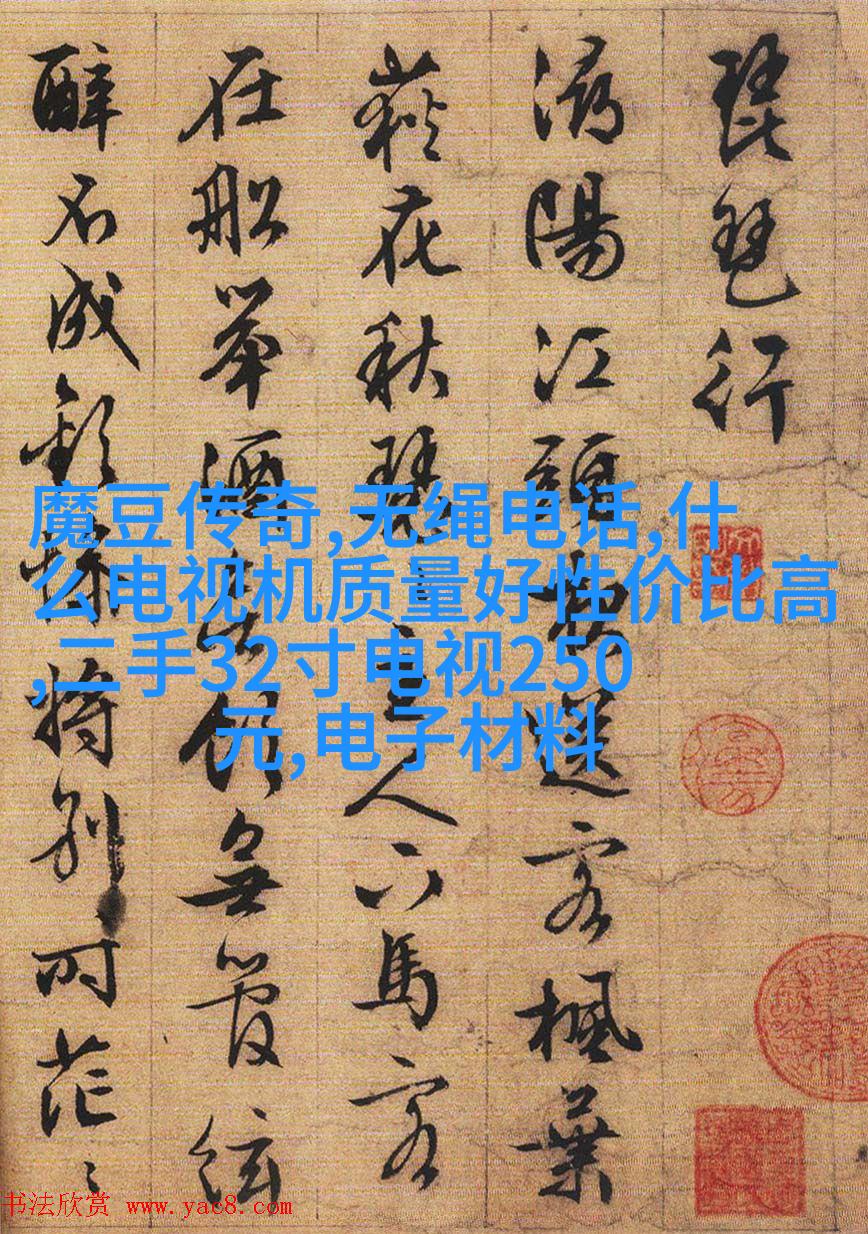 琵琶行
潯陽江頭夜送客楓葉
荻花秋瑟主人下馬客
在船舉酒欲飲無管絃
醉不成歡慘將別時茫〻
魔豆传奇,无绳电话,什
么电视机质量好性价比高
,二手32寸电视250
元,电子材料
书法欣赏 www.yac8.com